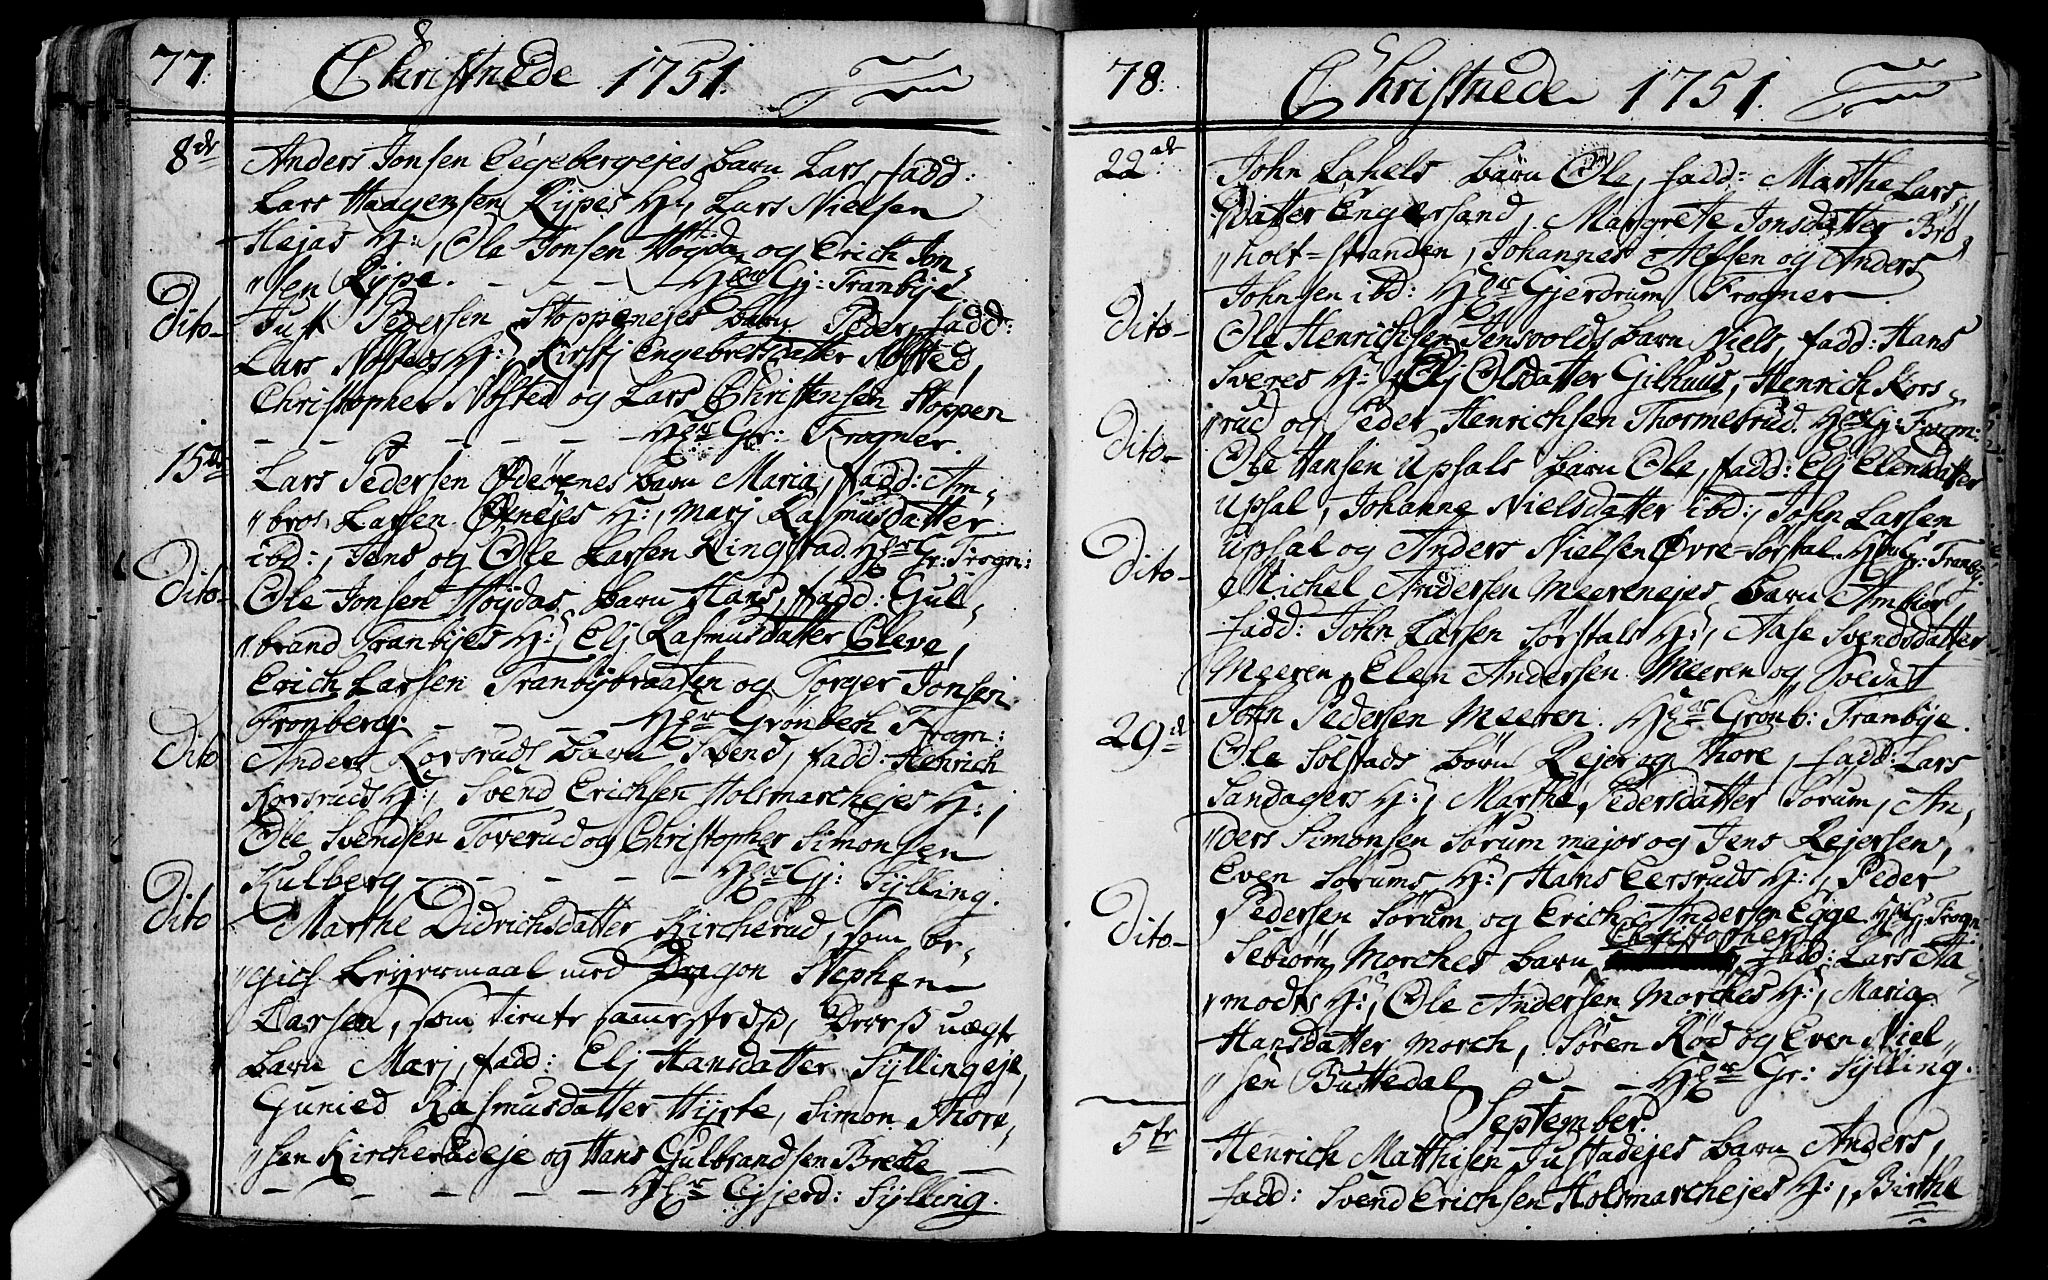 77.
Christnede 1751.
8de Anders Jonsen Eigebergejes barn Lars, fadd:
Lars Haagensen Rypes H:, Lars Nielsen
Hejas H:, Ole Jonsen Høgda og Erich Jon„
„sen Rype. - - - - Hr Gj: Tranbye.
Dito- Just Pedersen Stoppenejes barn Peder, fadd:
Lars Nøsteds H:, Kirstj Engebretsdatter Nøsted,
Christopher Nøsted og Lars Christensen Stoppen
- - - - - - Hr Gr: Frogner.
15de Lars Pedersen Ødeøvnes barn Maria, fadd: Am„
„bros Larsen Øvnejes H:, Marj Rasmusdatter
ibd:, Jens og Ole Larsen Ringstad. Hr Gr: Frogn:
Dito- Ole Jonsen Høydas barn Hans, fadd: Gul„
„brand Tranbyes H:, Elj Rasmusdatter Cleve,
Erich Larsen Tranbybraaten og Torger Jonsen
Fronberg. - - - - Hr Grønbech Frogn:
Dito Anders Korsruds barn Svend, fadd: Henrich
Korsruds H:, Svend Erichsen Holsmarchejes H:,
Ole Svendsen Toverud og Christopher Simonsen
Kulberg - - - - - Hr Gj: Sylling.
Dito Marthe Didrichsdatter Kircherud, som be„
„gich Leyermaal med Dragon Stephen
Larsen, som tiente sammestedß, Dereß uægte
barn Marj, fadd: Elj Hansdatter Syllingeje,
Gunied Rasmusdatter Hyrte, Simon Thore„
„sen Kircherudeje og Hans Gulbrandsen Breche
- - - - - - Hr Gjerd: Sylling.
78.
Christnede 1751.
22de John Lahels barn Ole, fadd: Marthe Lars„
„datter Engersand, Margrete Jonsdatter Brø„
„holt=stranden, Johannes Alfsen og Anders
Johnsen ibd: Hr Gjerdrum Frogner.
Dito- Ole Henrichsen Jensvolds barn Niels, fadd: Hans
Sveres H:, Elj Olsdatter Gilhuus, Henrich Kors„
„rud og Peder Henrichsen Thormesrud. Hr Gj: Frogn:
Dito- Ole Hansen Upsals barn Ole, fadd: Elj Elensdatter
Upsal, Johanne Nielsdatter ibd:, John Larsen
Upsal og Anders Nielsen Øvre=Sørsdal. Hr Gj: Tranby.
Dito- Michel Andersen Meerenejes barn Ambiør,
fadd: John Larsen Sørsdals H:, Aase Svendsdatter
Meeren, Elen Andersen Meeren og Soldat
John Pedersen Meeren. Hr Grønb: Tranbye.
29de Ole Solstads børn Rejer og Thore, fadd: Lars
Sandagers H:, Marthe Pedersdatter Sørum, An„
„ders Simonsen Sørum major og Jens Rejersen,
Even Sørums H:, Hans Eersruds H:, Peder
Pedersen Sørum og Erich Andersen Egge. Hr Gj: Frogn:
Dito- Sebiørn Morches barn Christopher, fadd: Lars Aa„
„modts H:, Ole Andersen Morches H:, Maria
Hansdatter Morch, Søren Rød og Even Niel„
„sen Buttedal - - - Hr Gr: Sylling.
September.
5te Henrich Matthisen Justadejes barn Anders,
fadd: Svend Erichsen Holsmarchejes H:, Birthe